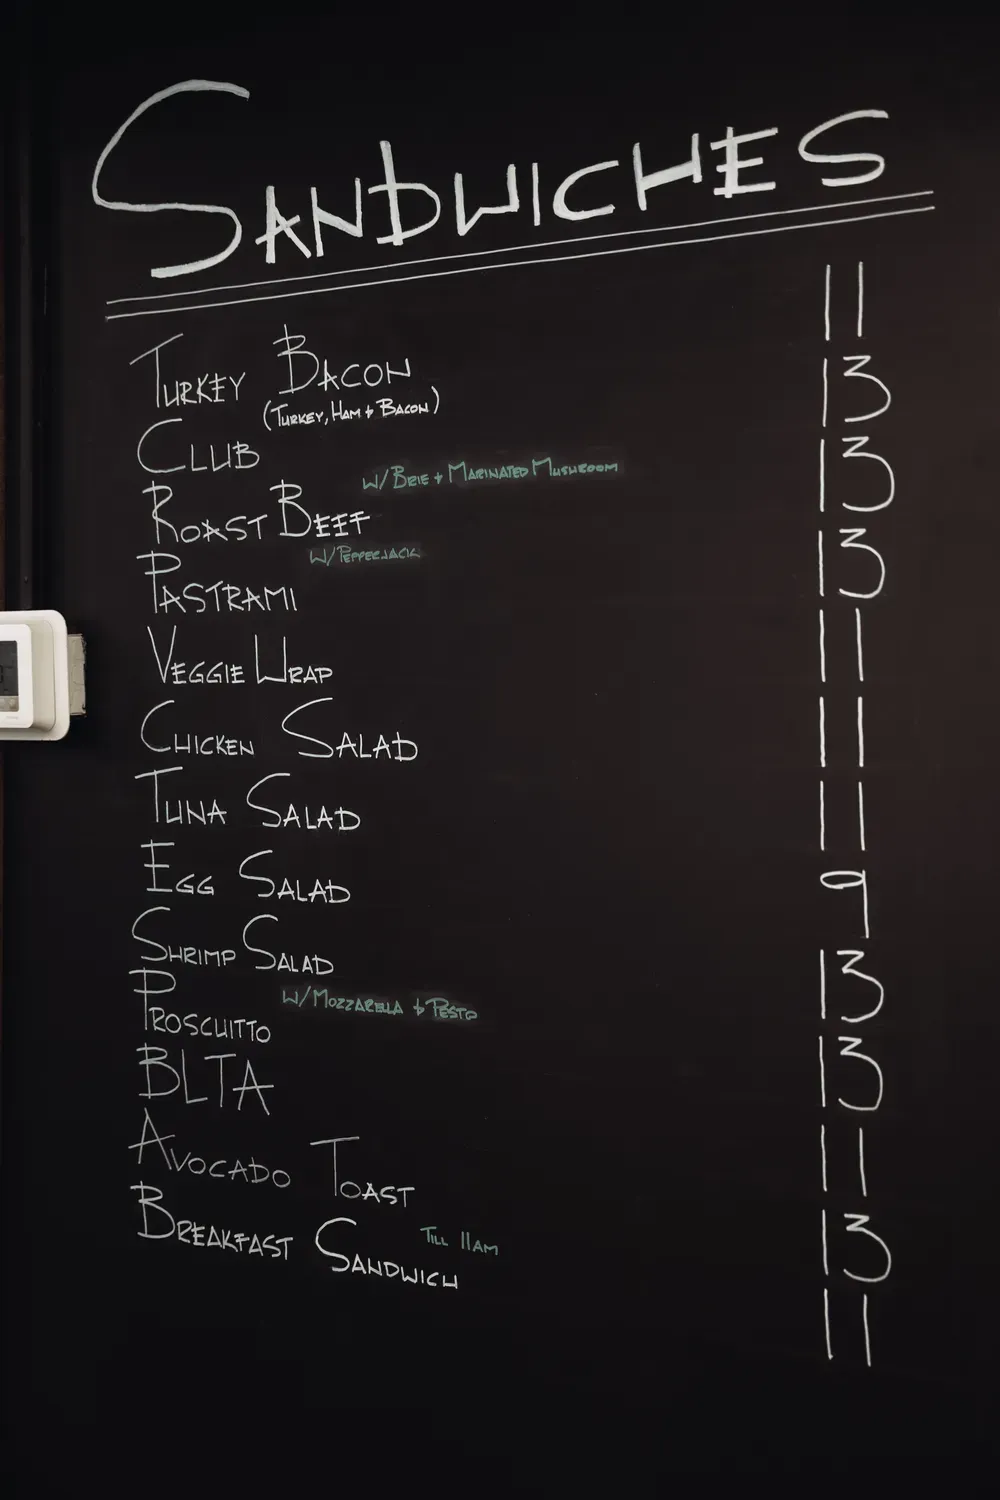 SANDWICHES
TURKEY BACON 11
(TURKEY, HAM + BACON)
CLUB 13
W/ BRIE + MARINATED MUSHROOM
ROAST BEEF 13
W/ PEPPERJACK
PASTRAMI 13
VEGGIE WRAP 11
CHICKEN SALAD 11
TUNA SALAD 11
EGG SALAD 9
SHRIMP SALAD 13
W/ MOZZARELLA + PESTO
PROSCUITTO 13
BLTA 11
AVOCADO TOAST 13
BREAKFAST SANDWICH TILL 11AM 11